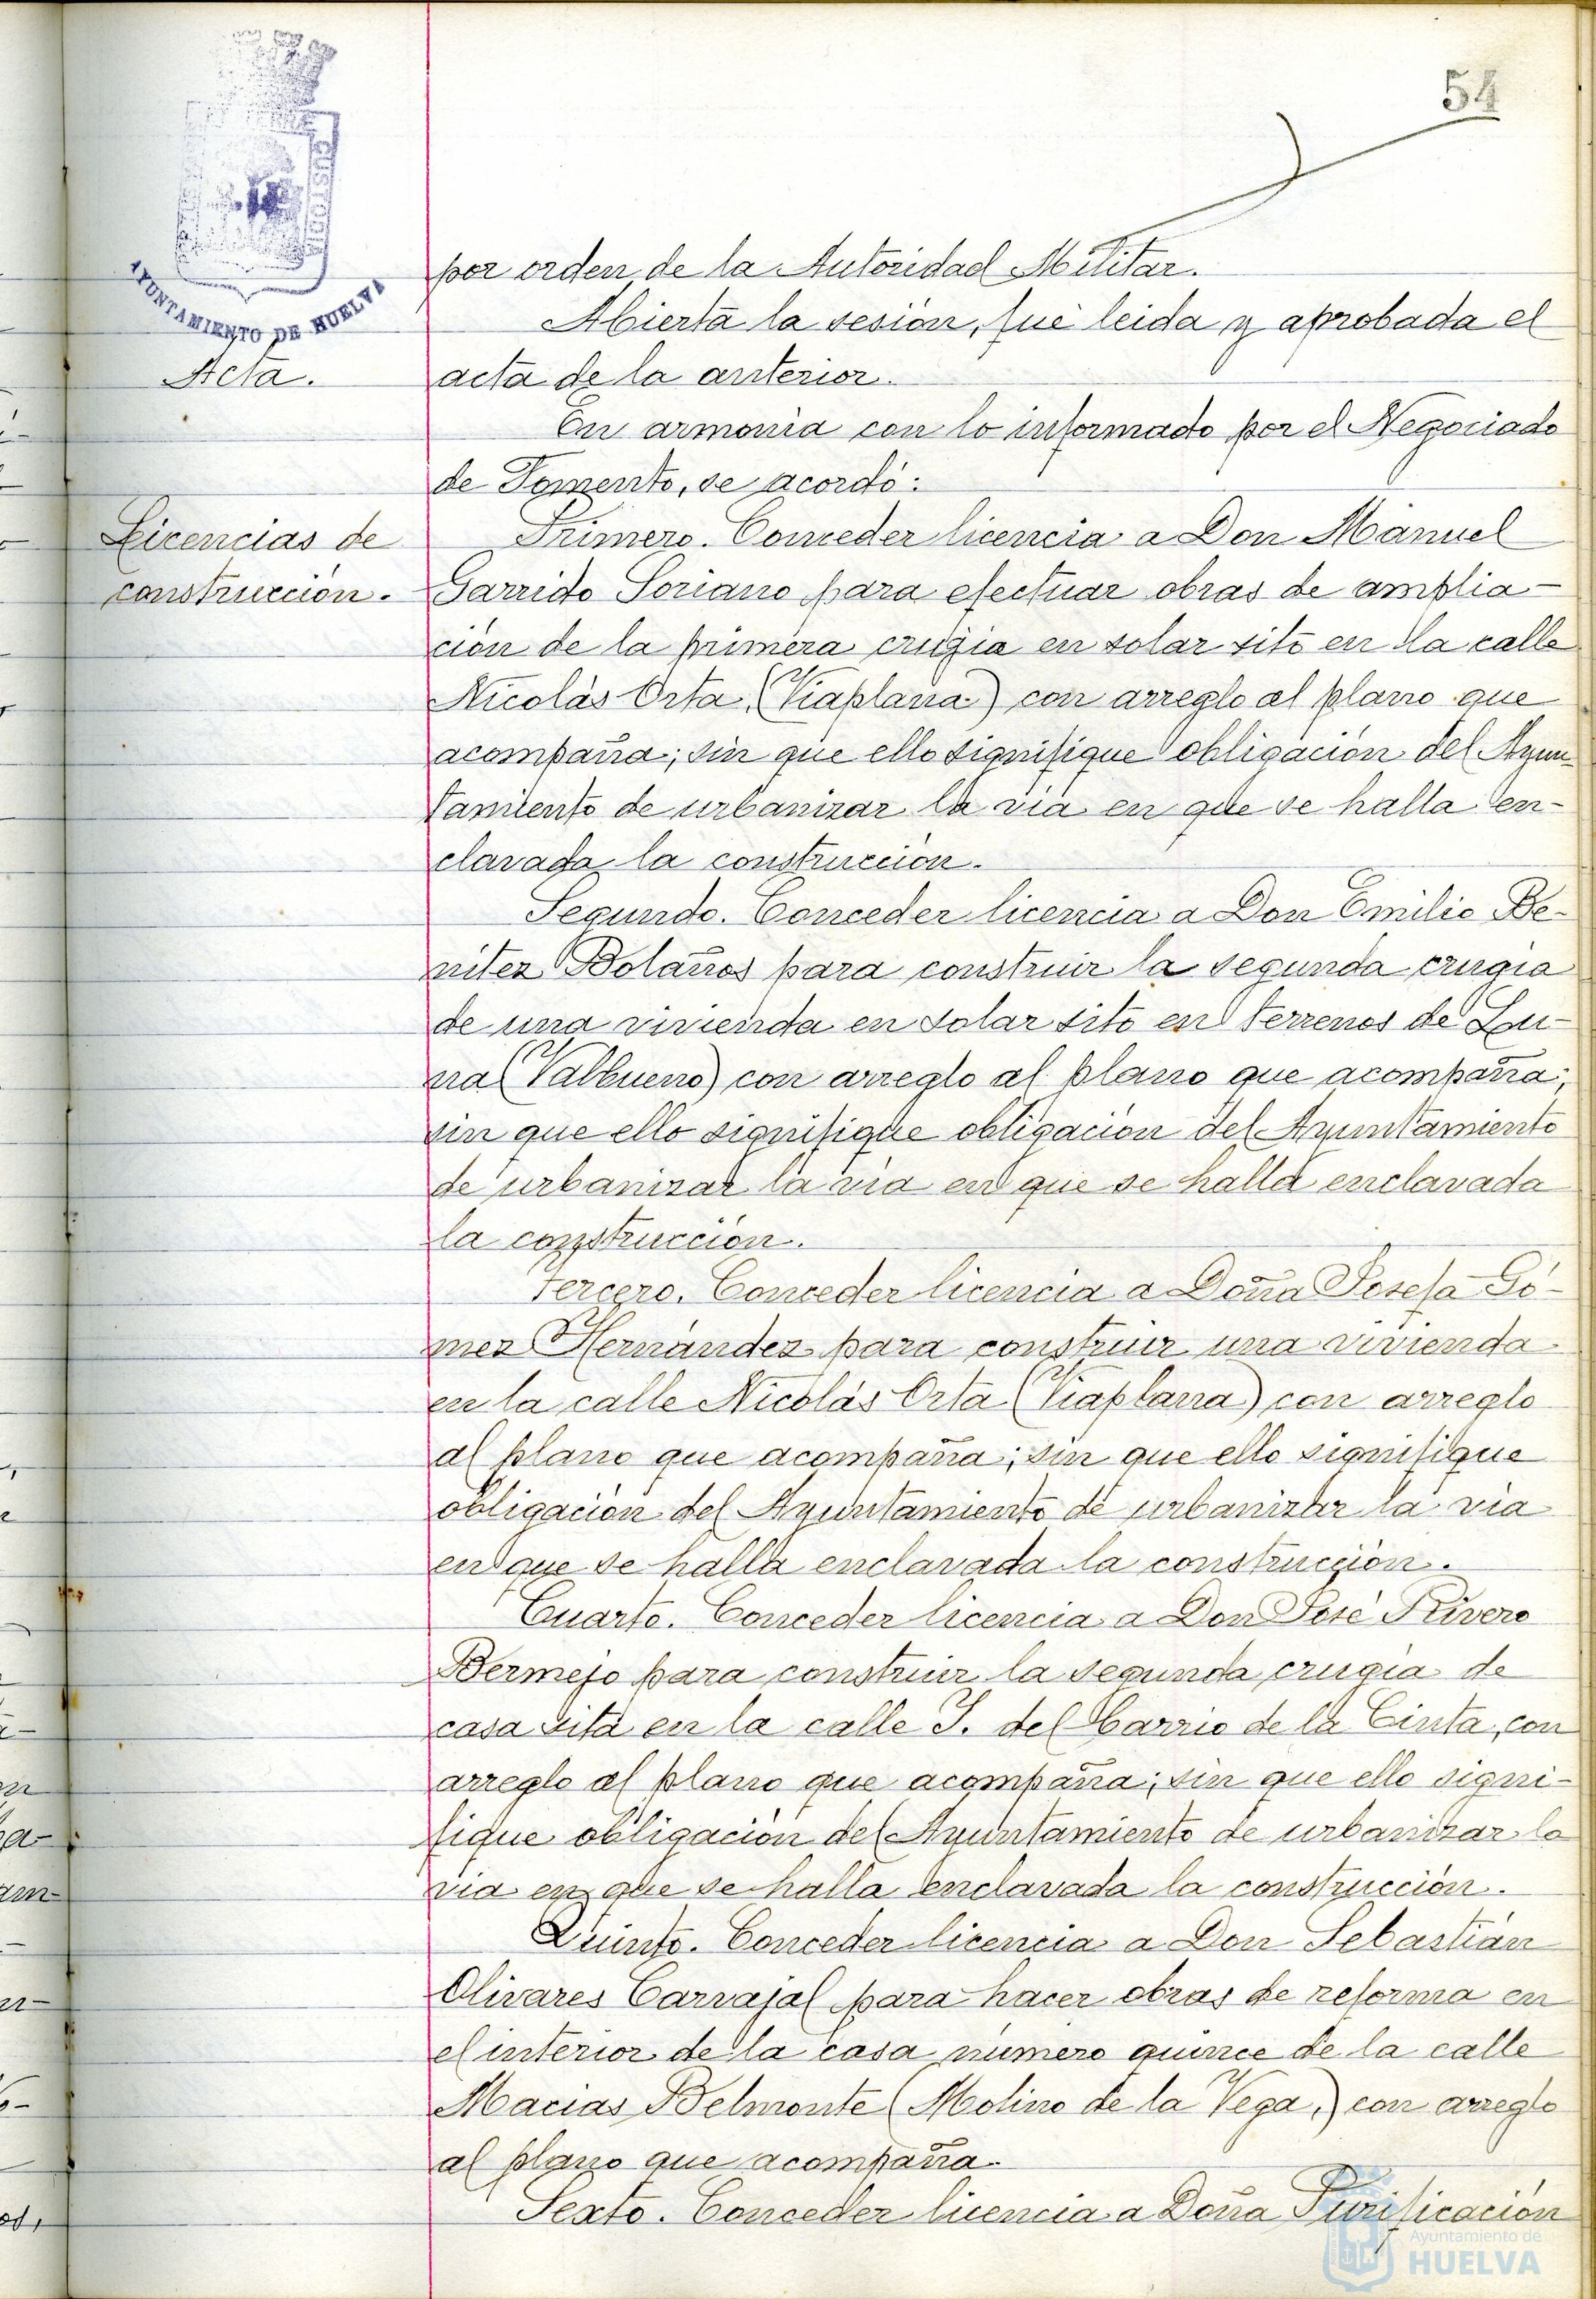 54
AYUNTAMIENTO DE HUELVA
por orden de la Autoridad Militar.
Abierta la sesión, fué leida y aprobada el
Acta.
acta de la anterior.
En armonia con lo informado por el Negociado
de Fomento, se acordó:
Licencias de
construcción.
Primero. Conceder licencia a Don Manuel
Garrido Soriano para efectuar obras de amplia-
ción de la primera crugia en solar sito en la calle
Nicolás Orta (Viaplana) con arreglo al plano que
acompaña; sin que ello signifique obligación del Ayun-
tamiento de urbanizar la via en que se halla en-
clavada la construcción.
Segundo. Conceder licencia a Don Emilio Be-
nitez Bolaños para construir la segunda crugia
de una vivienda en solar sito en terrenos de Lou-
na (Valbueno) con arreglo al plano que acompaña;
sin que ello signifique obligación del Ayuntamiento
de urbanizar la via en que se halla enclavada
la construcción.
Tercero. Conceder licencia a Doña Josefa Gó-
mez Hernández para construir una vivienda
en la calle Nicolás Orta (Viaplana) con arreglo
al plano que acompaña; sin que ello signifique
obligación del Ayuntamiento de urbanizar la via
en que se halla enclavada la construcción.
Cuarto. Conceder licencia a Don José Rivero
Bermejo para construir la segunda crugia de
casa sita en la calle J. del Barrio de la Cinta, con
arreglo al plano que acompaña; sin que ello signi-
fique obligación del Ayuntamiento de urbanizar la
via en que se halla enclavada la construcción.
Quinto. Conceder licencia a Don Sebastián
Olivares Carvajal para hacer obras de reforma en
el interior de la casa número quince de la calle
Macias Belmonte (Molino de la Vega,) con arreglo
al plano que acompaña.
Sexto. Conceder licencia a Doña Purificación
Ayuntamiento de
HUELVA